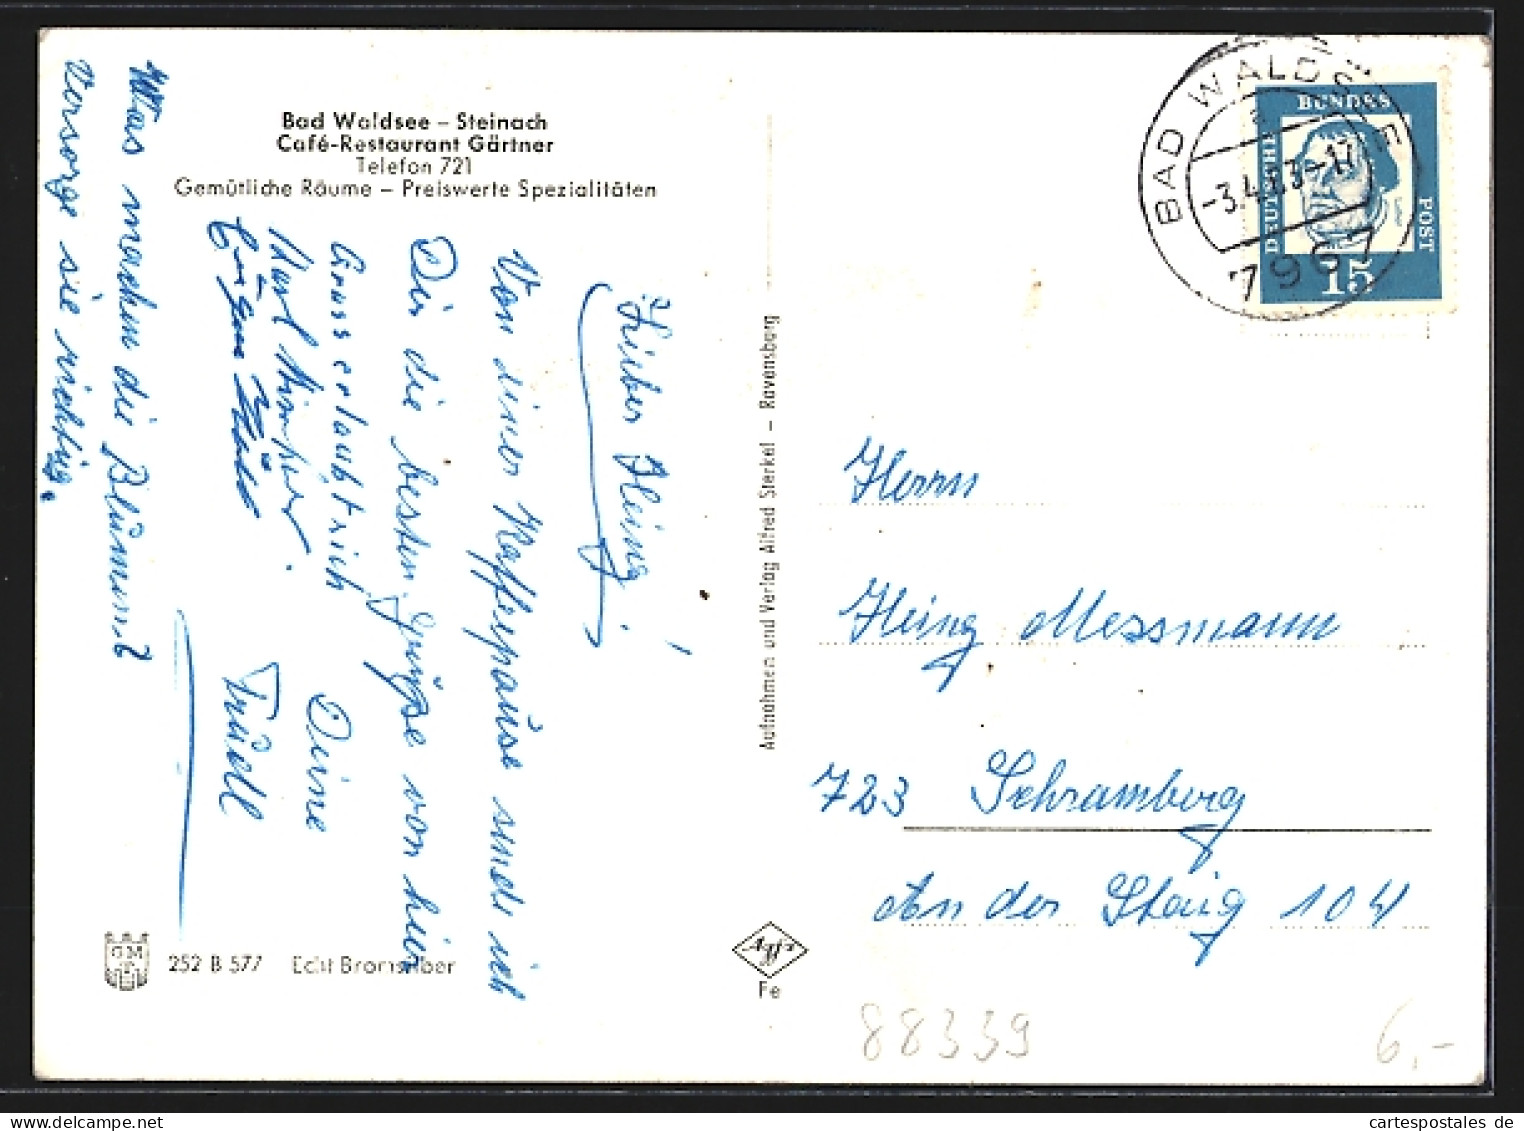 Bad Waldsee – Steinach
Café-Restaurant Gärtner
Telefon 721
Gemütliche Räume – Preiswerte Spezialitäten
Lieber Heinz!
Von einer Kaffeepause sende ich
Dir die besten Grüße von hier
Gruss erlaubt sich
Deine
Trudel
Was machen die Blumen?
Versorge sie richtig.
252 B 577 Echt Bromsilber
Aufnahmen und Verlag Alfred Sterkel – Ravensburg
Agfa
Fe
BAD WALDSEE
-3.4.63-17
7967
DEUTSCHE
BUNDES
POST
15
Herrn
Heinz Messmann
723 Schramberg
An der Staig 104
88339
6,-
cartespostales.de